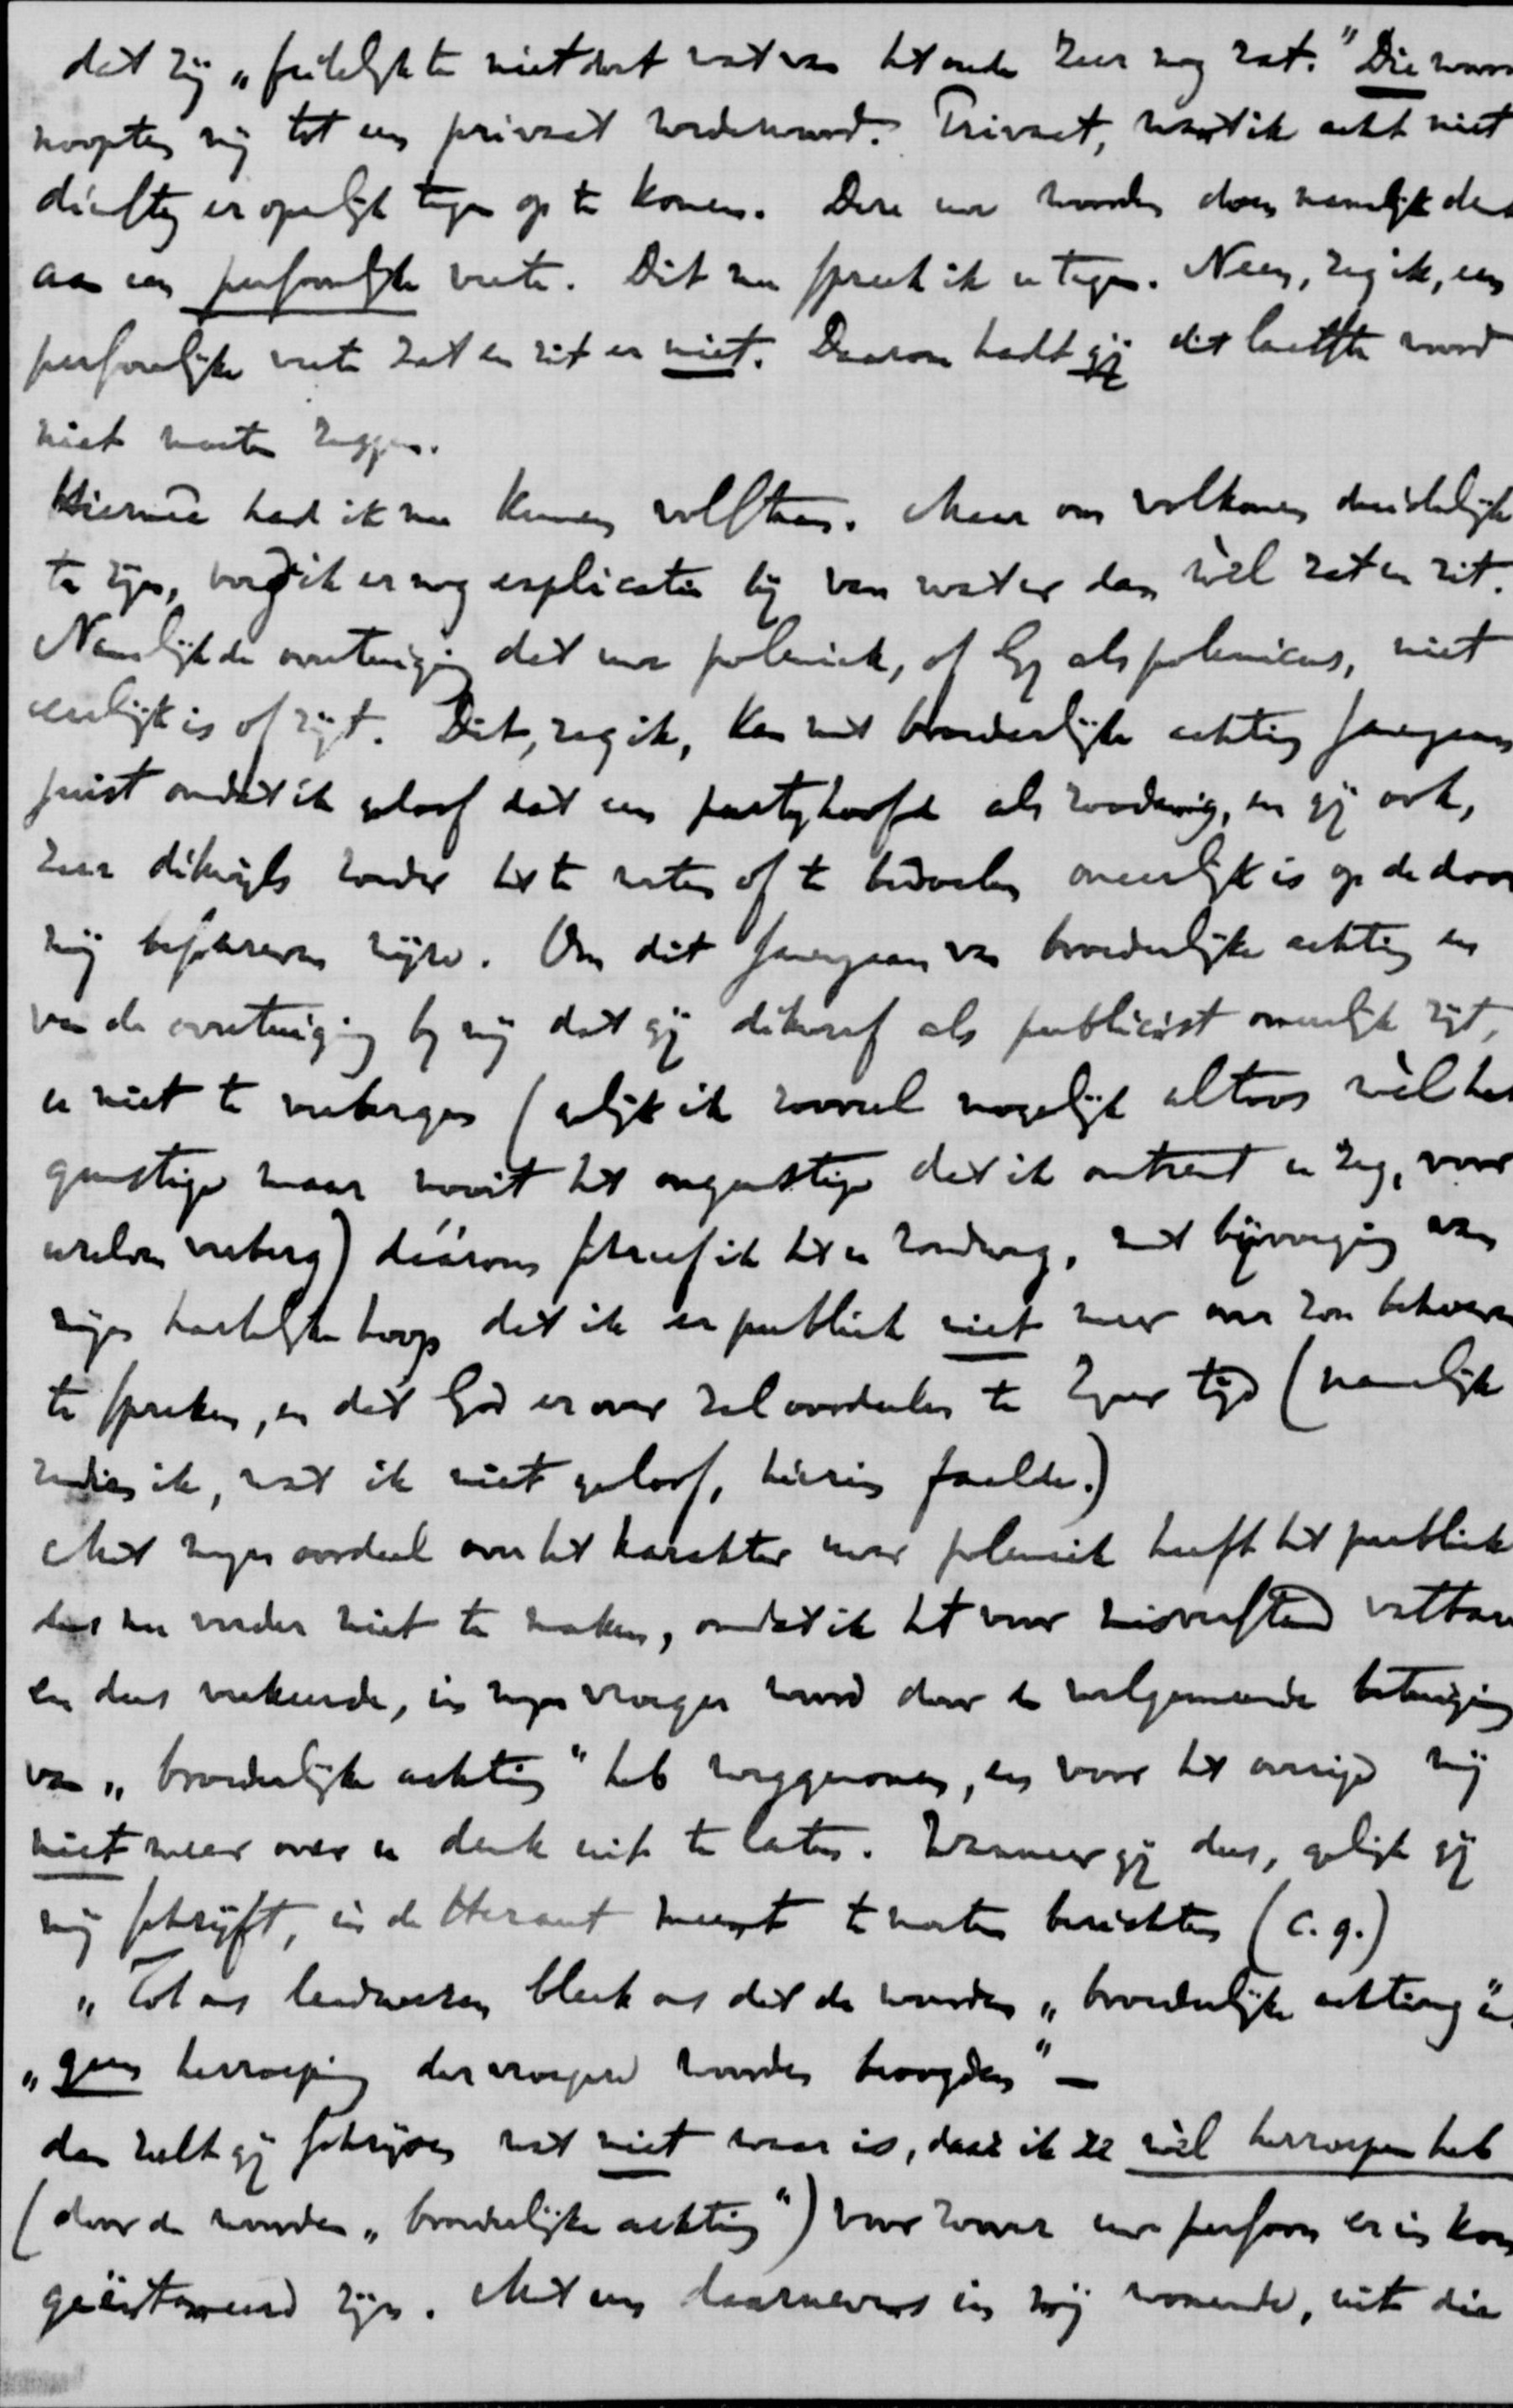 dat zij „feitelijk te niet doet wat van het oude zeer nog zat." Die woorden
noopten mij tot een privaat wederwoord. Privaat, want ik acht niet
dienstig er openlijk tegen op te komen. Deze uwe woorden doen namelijk denken
aan een persoonlijke veete. Dit nu spreek ik u tegen. Neen, zeg ik, een
persoonlijke veete zat en zit er niet. Daarom hadt gij dit laatste woord
niet moeten zeggen.
Hiermeê had ik nu kunnen volstaan. Maar om volkomen duidelijk
te zijn, voegde ik er nog explicatie bij van wat er dan wèl zat en zit.
Namelijk de overtuiging dat uwe polemiek, of Gij als polemicus, niet
eerlijk is of zijt. Dit, zeg ik, kan met broederlijke achting samengaan
juist omdat ik geloof dat een partyhoofd als zoodanig, en gij ook,
zeer dikwijls zonder het te weten of te bedoelen oneerlijk is op de door
mij beschreven wijze. Om dit samengaan van broederlijke achting en
van de overtuiging bij mij dat gij dikwerf als publicist oneerlijk zijt,
u niet te verbergen (gelijk ik zooveel mogelijk altoos wèl het
gunstige maar nooit het ongunstige dat ik omtrent u zeg, voor
uzelven verberg) dáárom schreef ik het u rondweg, met bijvoeging van
mijn hartelijke hoop dat ik er publiek niet meer over zou behoeven
te spreken, en dat God er over zal oordeelen te Zijner tijd (namelijk
indien ik, wat ik niet geloof, hierin faalde.)
Met mijn oordeel over het karakter uwer polemiek heeft het publiek
dus nu verder niet te maken, omdat ik het voor misverstand vatbare
en dus verkeerde, in mijn vroeger woord door de welgemeende betuiging
van „broederlijke achting" heb weggenomen, en voor het overige mij
niet meer over u denk uit te laten. Wanneer gij dus, gelijk gij
mij schrijft, in de Heraut meent te moeten berichten (c.q.)
„Tot ons leedwezen bleek ons dat de woorden „broederlijke achting"
„geen herroeping der vroegere woorden beoogden" —
dan zult gij schrijven wat niet waar is, daar ik ze wèl herroepen heb
(door de woorden „broederlijke achting") voor zoover uw persoon er in kon
geëntameerd zijn. Met een daarnevens in mij wonende, uit die